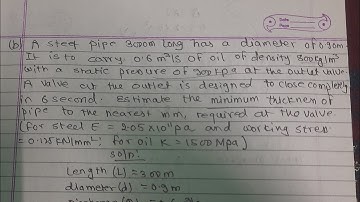 Date
Page
(b) A steel pipe 3000m long has a diameter of 0.90m
It is to carry 0.6 m³/s of oil of density 800kg/m³
with a static pressure of 300KPa at the outlet valve.
A valve at the outlet is designed to close completely
in 6 second. Estimate the minimum thickness of
pipe to the nearest mm, required at the valve
[For steel E = 2.05×10¹¹pa and working stress
= 0.125 KN/mm², for oil K = 1500 MPa]
Solⁿ:
Length (L) = 3000m
diameter (d) = 0.9m